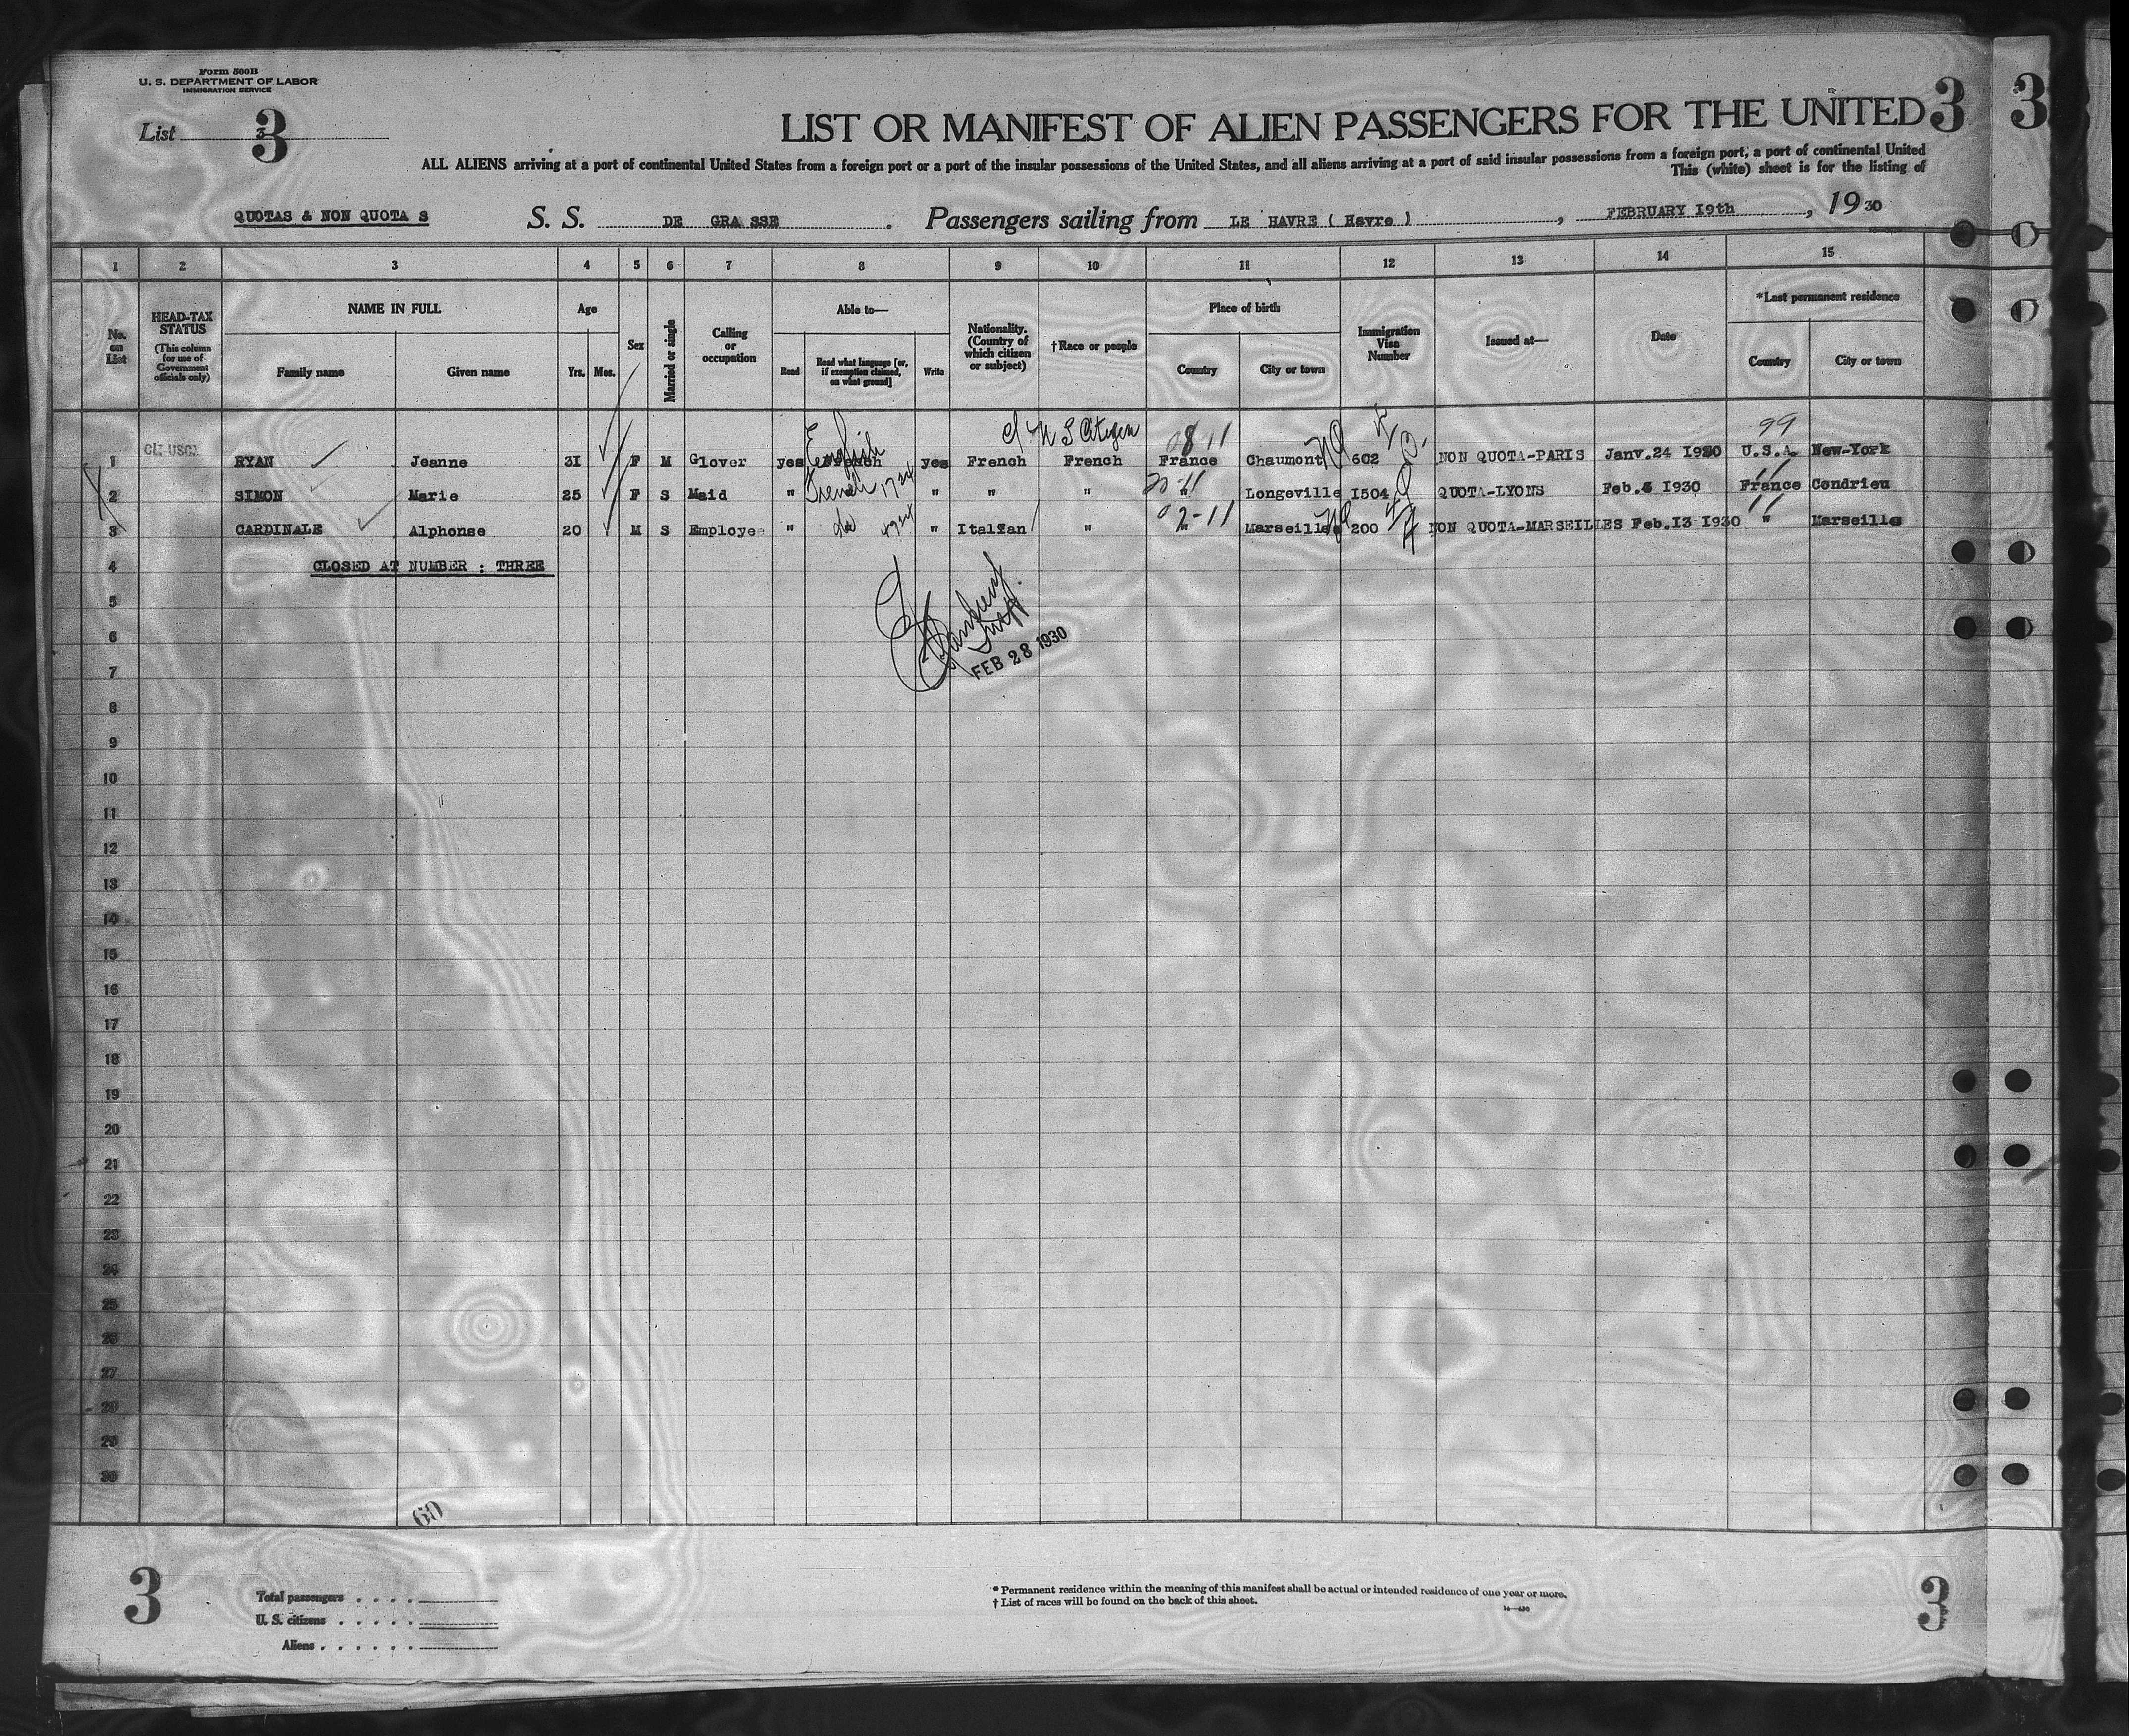 Form 500B
U. S. DEPARTMENT OF LABOR
IMMIGRATION SERVICE
List 3
3 3
LIST OR MANIFEST OF ALIEN PASSENGERS FOR THE UNITED
ALL ALIENS arriving at a port of continental United States from a foreign port or a port of the insular possessions of the United States, and all aliens arriving at a port of said insular possessions from a foreign port, a port of continental United
This (white) sheet is for the listing of
QUOTAS & NON QUOTA S S. S. DE GRASSE . Passengers sailing from LE HAVRE ( Havre ) , FEBRUARY 19th , 1930
1 2 3 4 5 6 7 8 9 10 11 12 13 14 15
No. on List
HEAD-TAX STATUS (This column for use of Government officials only)
NAME IN FULL
Family name Given name
Age
Yrs. Mos.
Sex
Married or single
Calling or occupation
Able to—
Read Read what language [or, if exemption claimed, on what ground] Write
Nationality. (Country of which citizen or subject)
†Race or people
Place of birth
Country City or town
Immigration Visa Number
Issued at—
Date
*Last permanent residence
Country City or town
English U S Citizen 08 11 99
1 RYAN Jeanne 31 F M Glover yes French yes French French France Chaumont 602 NON QUOTA-PARIS Janv.24 1930 U.S.A. New-York
French 11 11
2 SIMON Marie 25 F S Maid " " " " " Longeville 1504 QUOTA-LYONS Feb.3 1930 France Condrieu
02-11 11
3 CARDINALE Alphonse 20 M S Employee " do " Italian " " Marseille 200 NON QUOTA-MARSEILLES Feb.13 1930 " Marseille
4 CLOSED AT NUMBER : THREE
5
6
FEB 28 1930
7
8
9
10
11
12
13
14
15
16
17
18
19
20
21
22
23
24
25
26
27
28
29
30
60
3 3
Total passengers
U. S. citizens
Aliens
* Permanent residence within the meaning of this manifest shall be actual or intended residence of one year or more.
† List of races will be found on the back of this sheet.
14—430